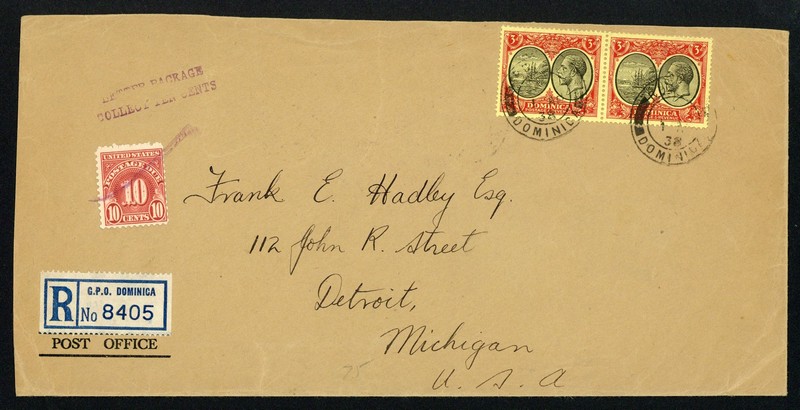 LETTER PACKAGE
COLLECT TEN CENTS
3d 3d
DOMINICA DOMINICA
38
DOMINICA
38
DOMINICA
UNITED STATES
POSTAGE DUE
10
10 CENTS 10
Frank E. Hadley Esq.
112 John R. Street
Detroit,
Michigan
U. S. A
R
G.P.O. DOMINICA
No 8405
POST OFFICE
75